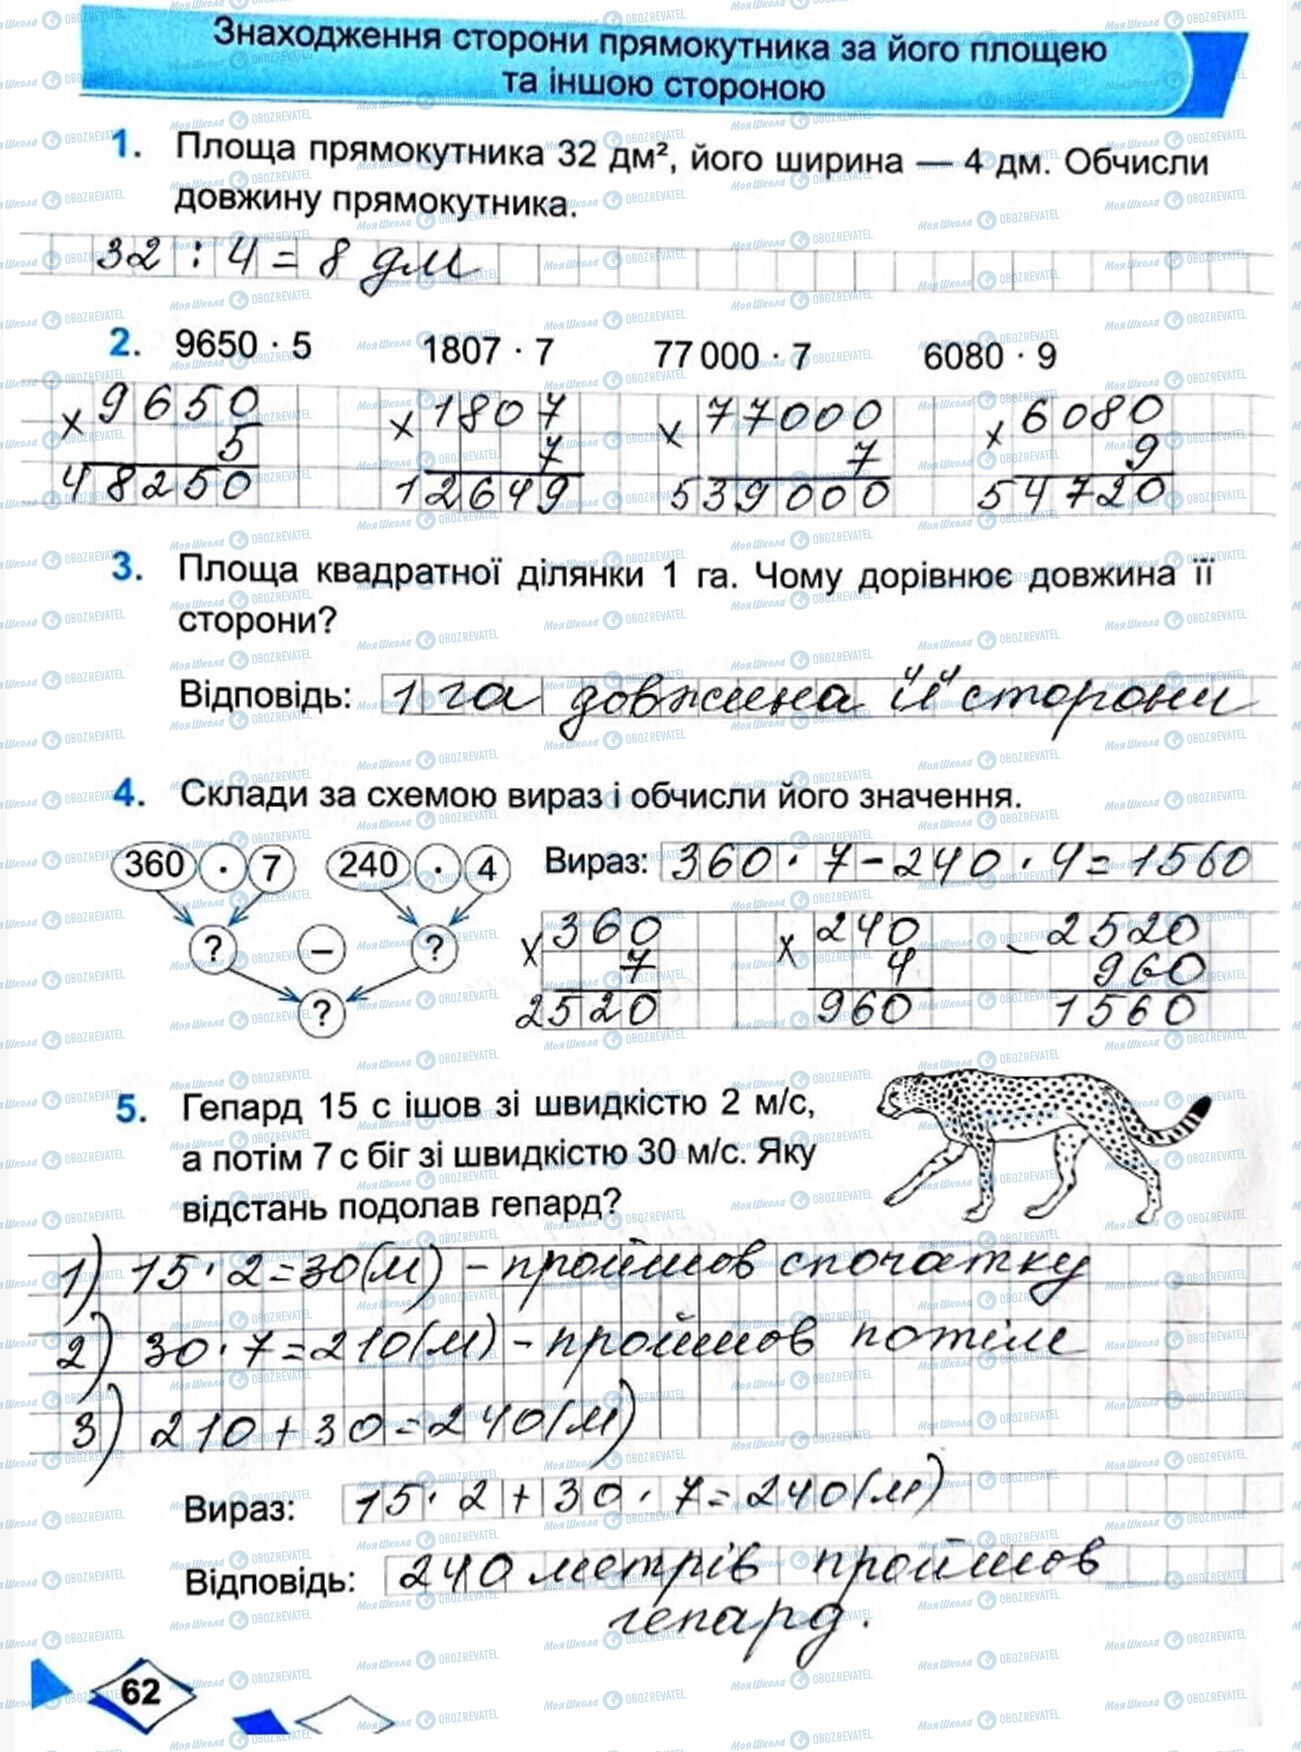 Знаходження сторони прямокутника за його площею
та іншою стороною
1. Площа прямокутника 32 дм², його ширина — 4 дм. Обчисли
довжину прямокутника.
32 : 4 = 8 дм
2. 9650 · 5 1807 · 7 77 000 · 7 6080 · 9
× 9650 × 1807 × 77000 × 6080
5 7 7 9
48250 12649 539000 54720
3. Площа квадратної ділянки 1 га. Чому дорівнює довжина її
сторони?
Відповідь: 1 га довжина її сторони
4. Склади за схемою вираз і обчисли його значення.
360 · 7 240 · 4 Вираз: 360 · 7 - 240 · 4 = 1560
? – ? × 360 × 240 - 2520
7 4 960
? 2520 960 1560
5. Гепард 15 с ішов зі швидкістю 2 м/с,
а потім 7 с біг зі швидкістю 30 м/с. Яку
відстань подолав гепард?
1) 15 · 2 = 30 (м) - пройшов спочатку
2) 30 · 7 = 210 (м) - пройшов потім
3) 210 + 30 = 240 (м)
Вираз: 15 · 2 + 30 · 7 = 240 (м)
Відповідь: 240 метрів пройшов
гепард.
62
МояШкола OBOZREVATEL